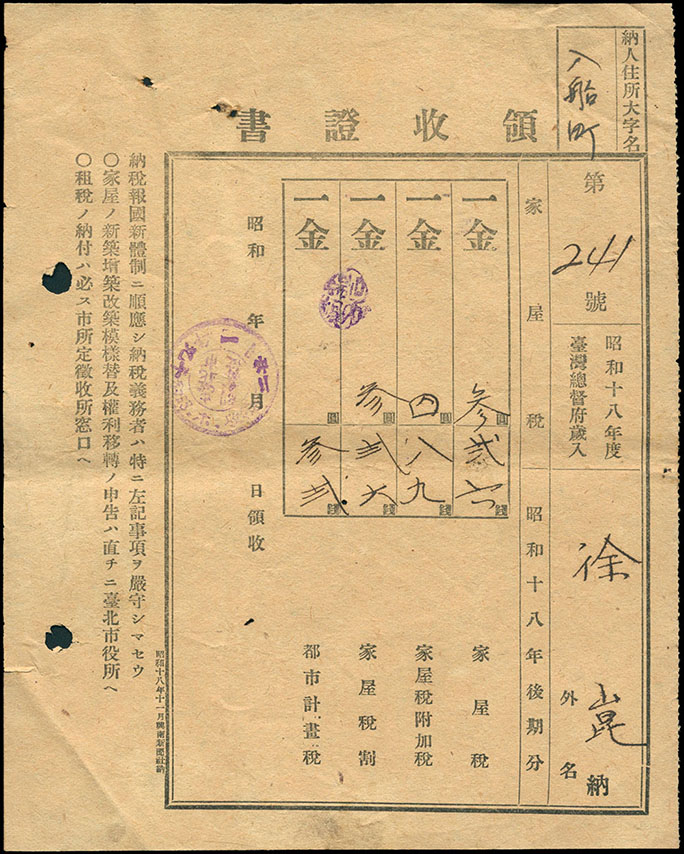 納人住所大字名
入船町
領收證書
第241號
昭和十八年度
臺灣總督府歲入
徐崑
外 名
納
家屋稅 昭和十八年後期分
一金 參圓貳六錢 家屋稅
一金 四圓八九錢 家屋稅附加稅
一金 參圓貳六錢 家屋稅割
一金 圓參貳錢 都市計畫稅
昭和 年 月 日領收
納稅報國新體制ニ順應シ納稅義務者ハ特ニ左記事項ヲ嚴守シマセウ
〇家屋ノ新築增築改築模樣替及權利移轉ノ申告ハ直チニ臺北市役所ヘ
〇租稅ノ納付ハ必ス市所定徵收所窓口ヘ
昭和十八年十一月興南新聞社納